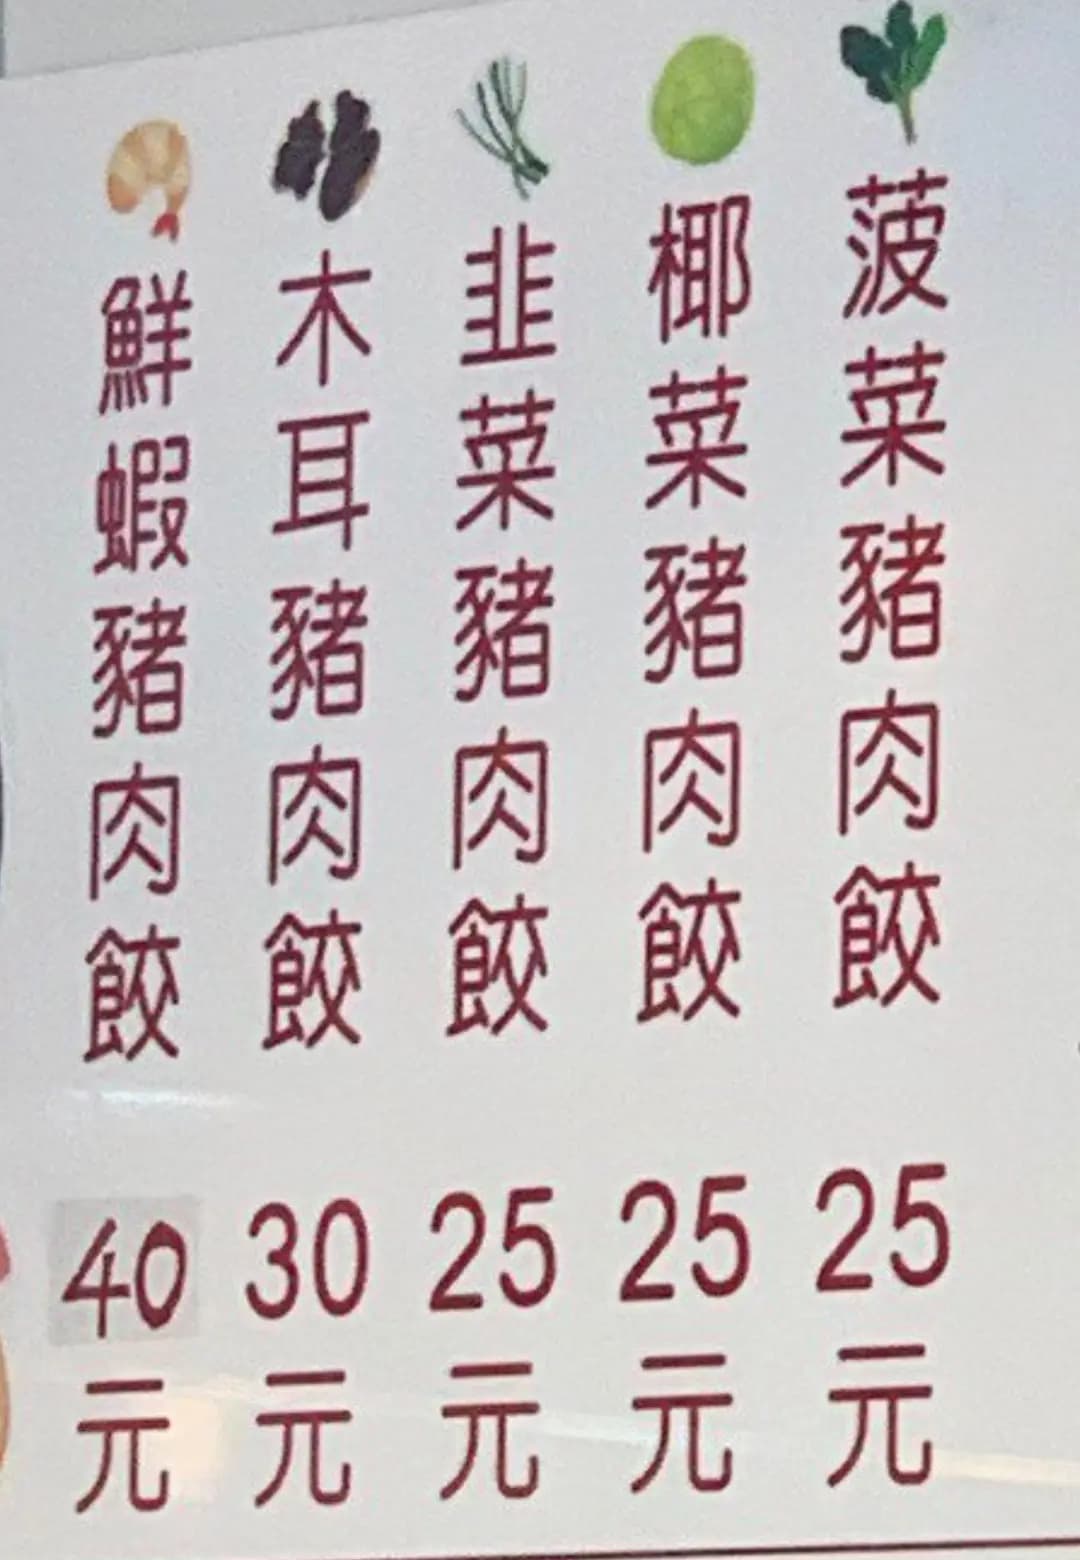 菠菜豬肉餃 25元
椰菜豬肉餃 25元
韭菜豬肉餃 25元
木耳豬肉餃 30元
鮮蝦豬肉餃 40元